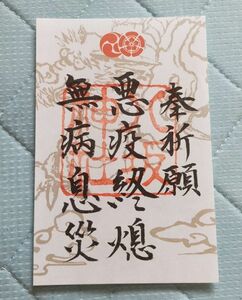 奉祈願
悪疫終熄
無病息災